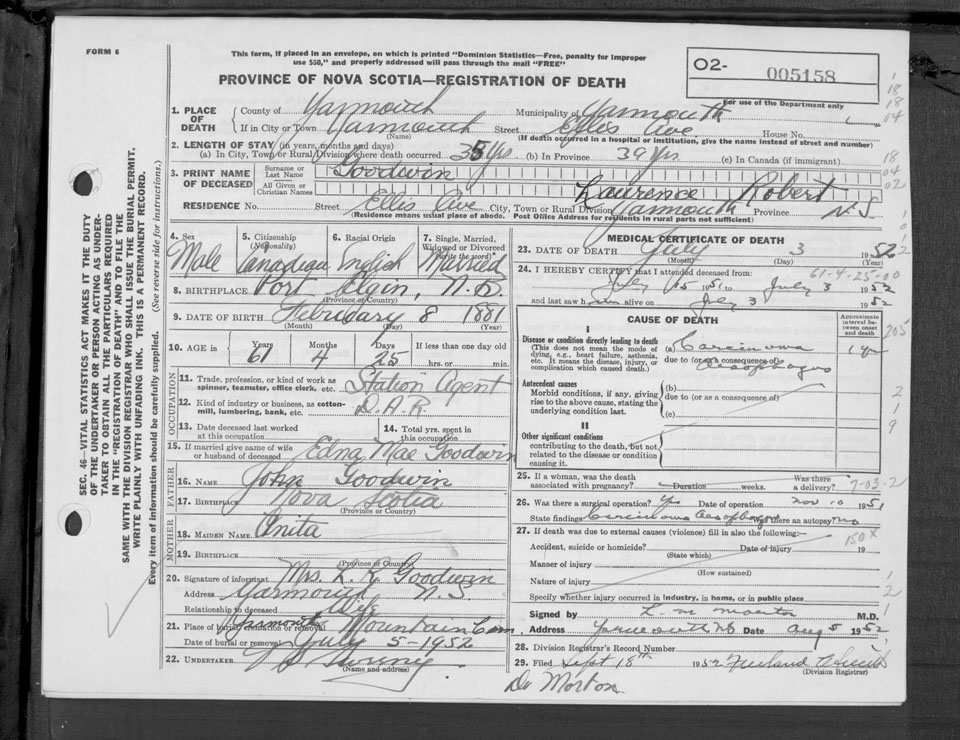 FORM 6
This form, if placed in an envelope, on which is printed "Dominion Statistics—Free, penalty for improper
use $50," and properly addressed will pass through the mail "FREE"
PROVINCE OF NOVA SCOTIA—REGISTRATION OF DEATH
O2- 005158
For use of the Department only
1. PLACE OF DEATH County of Yarmouth Municipality of Yarmouth
If in City or Town Yarmouth Street Ellis Ave. House No.
(Name) (If death occurred in a hospital or institution, give the name instead of street and number)
2. LENGTH OF STAY (in years, months and days)
(a) In City, Town or Rural Division where death occurred 35 Yrs (b) In Province 39 Yrs (c) In Canada (if immigrant)
3. PRINT NAME OF DECEASED Surname or Last Name Goodwin
All Given or Christian Names Lawrence Robert
RESIDENCE No. Street Ellis Ave City, Town or Rural Division Yarmouth Province N.S
(Residence means usual place of abode. Post Office Address for residents in rural parts not sufficient)
4. Sex Male
5. Citizenship (Nationality) Canadian
6. Racial Origin English
7. Single, Married, Widowed or Divorced (write the word) Married
8. BIRTHPLACE Port Elgin, N.B.
(Province or Country)
9. DATE OF BIRTH February 8 1881
(Month) (Day) (Year)
10. AGE in Years 61 Months 4 Days 25 If less than one day
hrs. or min.
OCCUPATION
11. Trade, profession, or kind of work as spinner, teamster, office clerk, etc. Station Agent
12. Kind of industry or business, as cotton-mill, lumbering, bank, etc. D.A.R.
13. Date deceased last worked at this occupation
14. Total yrs. spent in this occupation
15. If married give name of wife or husband of deceased Edna Mae Goodwin
FATHER
16. NAME John Goodwin
17. BIRTHPLACE Nova Scotia
(Province or Country)
MOTHER
18. MAIDEN NAME Anita
19. BIRTHPLACE
(Province or Country)
20. Signature of informant Mrs. L. R. Goodwin
Address Yarmouth N.S.
Relationship to deceased Wife
21. Place of burial, cremation or removal Yarmouth Mountain Cem
Date of burial or removal July 5-1952
22. UNDERTAKER Sweeny
(Name and address)
MEDICAL CERTIFICATE OF DEATH
23. DATE OF DEATH July 3 1952
(Month) (Day) (Year)
61-4-25-00
24. I HEREBY CERTIFY that I attended deceased from:
July 15 1951 to July 3 1952
and last saw him alive on July 3 1952
CAUSE OF DEATH
Approximate interval between onset and death
I
Disease or condition directly leading to death
(This does not mean the mode of dying, e.g., heart failure, asthenia, etc. It means the disease, injury, or complication which caused death.)
(a) Carcinoma 1 yr
due to (or as a consequence of) Oesophagus
Antecedent causes
Morbid conditions, if any, giving rise to the above cause, stating the underlying condition last.
(b)
due to (or as a consequence of)
(c)
II
Other significant conditions contributing to the death, but not related to the disease or condition causing it.
25. If a woman, was the death associated with pregnancy? Duration weeks. Was there a delivery?
26. Was there a surgical operation? Yes Date of operation Nov 10 1951
State findings Carcinoma Oesophagus Was there an autopsy? No
27. If death was due to external causes (violence) fill in also the following:—
150X
Accident, suicide or homicide? Date of injury 19
(State which)
Manner of injury
(How sustained)
Nature of injury
Specify whether injury occurred in Industry, in home, or in public place
Signed by L. M. Morton M.D.
Address Yarmouth NS Date Aug 5 1952
28. Division Registrar's Record Number
29. Filed Sept 18th 1952
(Division Registrar)
Dr Morton
SEC. 46—VITAL STATISTICS ACT MAKES IT THE DUTY
OF THE UNDERTAKER OR PERSON ACTING AS UNDER-
TAKER TO OBTAIN ALL THE PARTICULARS REQUIRED
IN THE "REGISTRATION OF DEATH" AND TO FILE THE
SAME WITH THE DIVISION REGISTRAR WHO SHALL ISSUE THE BURIAL PERMIT.
WRITE PLAINLY WITH UNFADING INK. THIS IS A PERMANENT RECORD.
Every item of information should be carefully supplied. (See reverse side for instructions.)